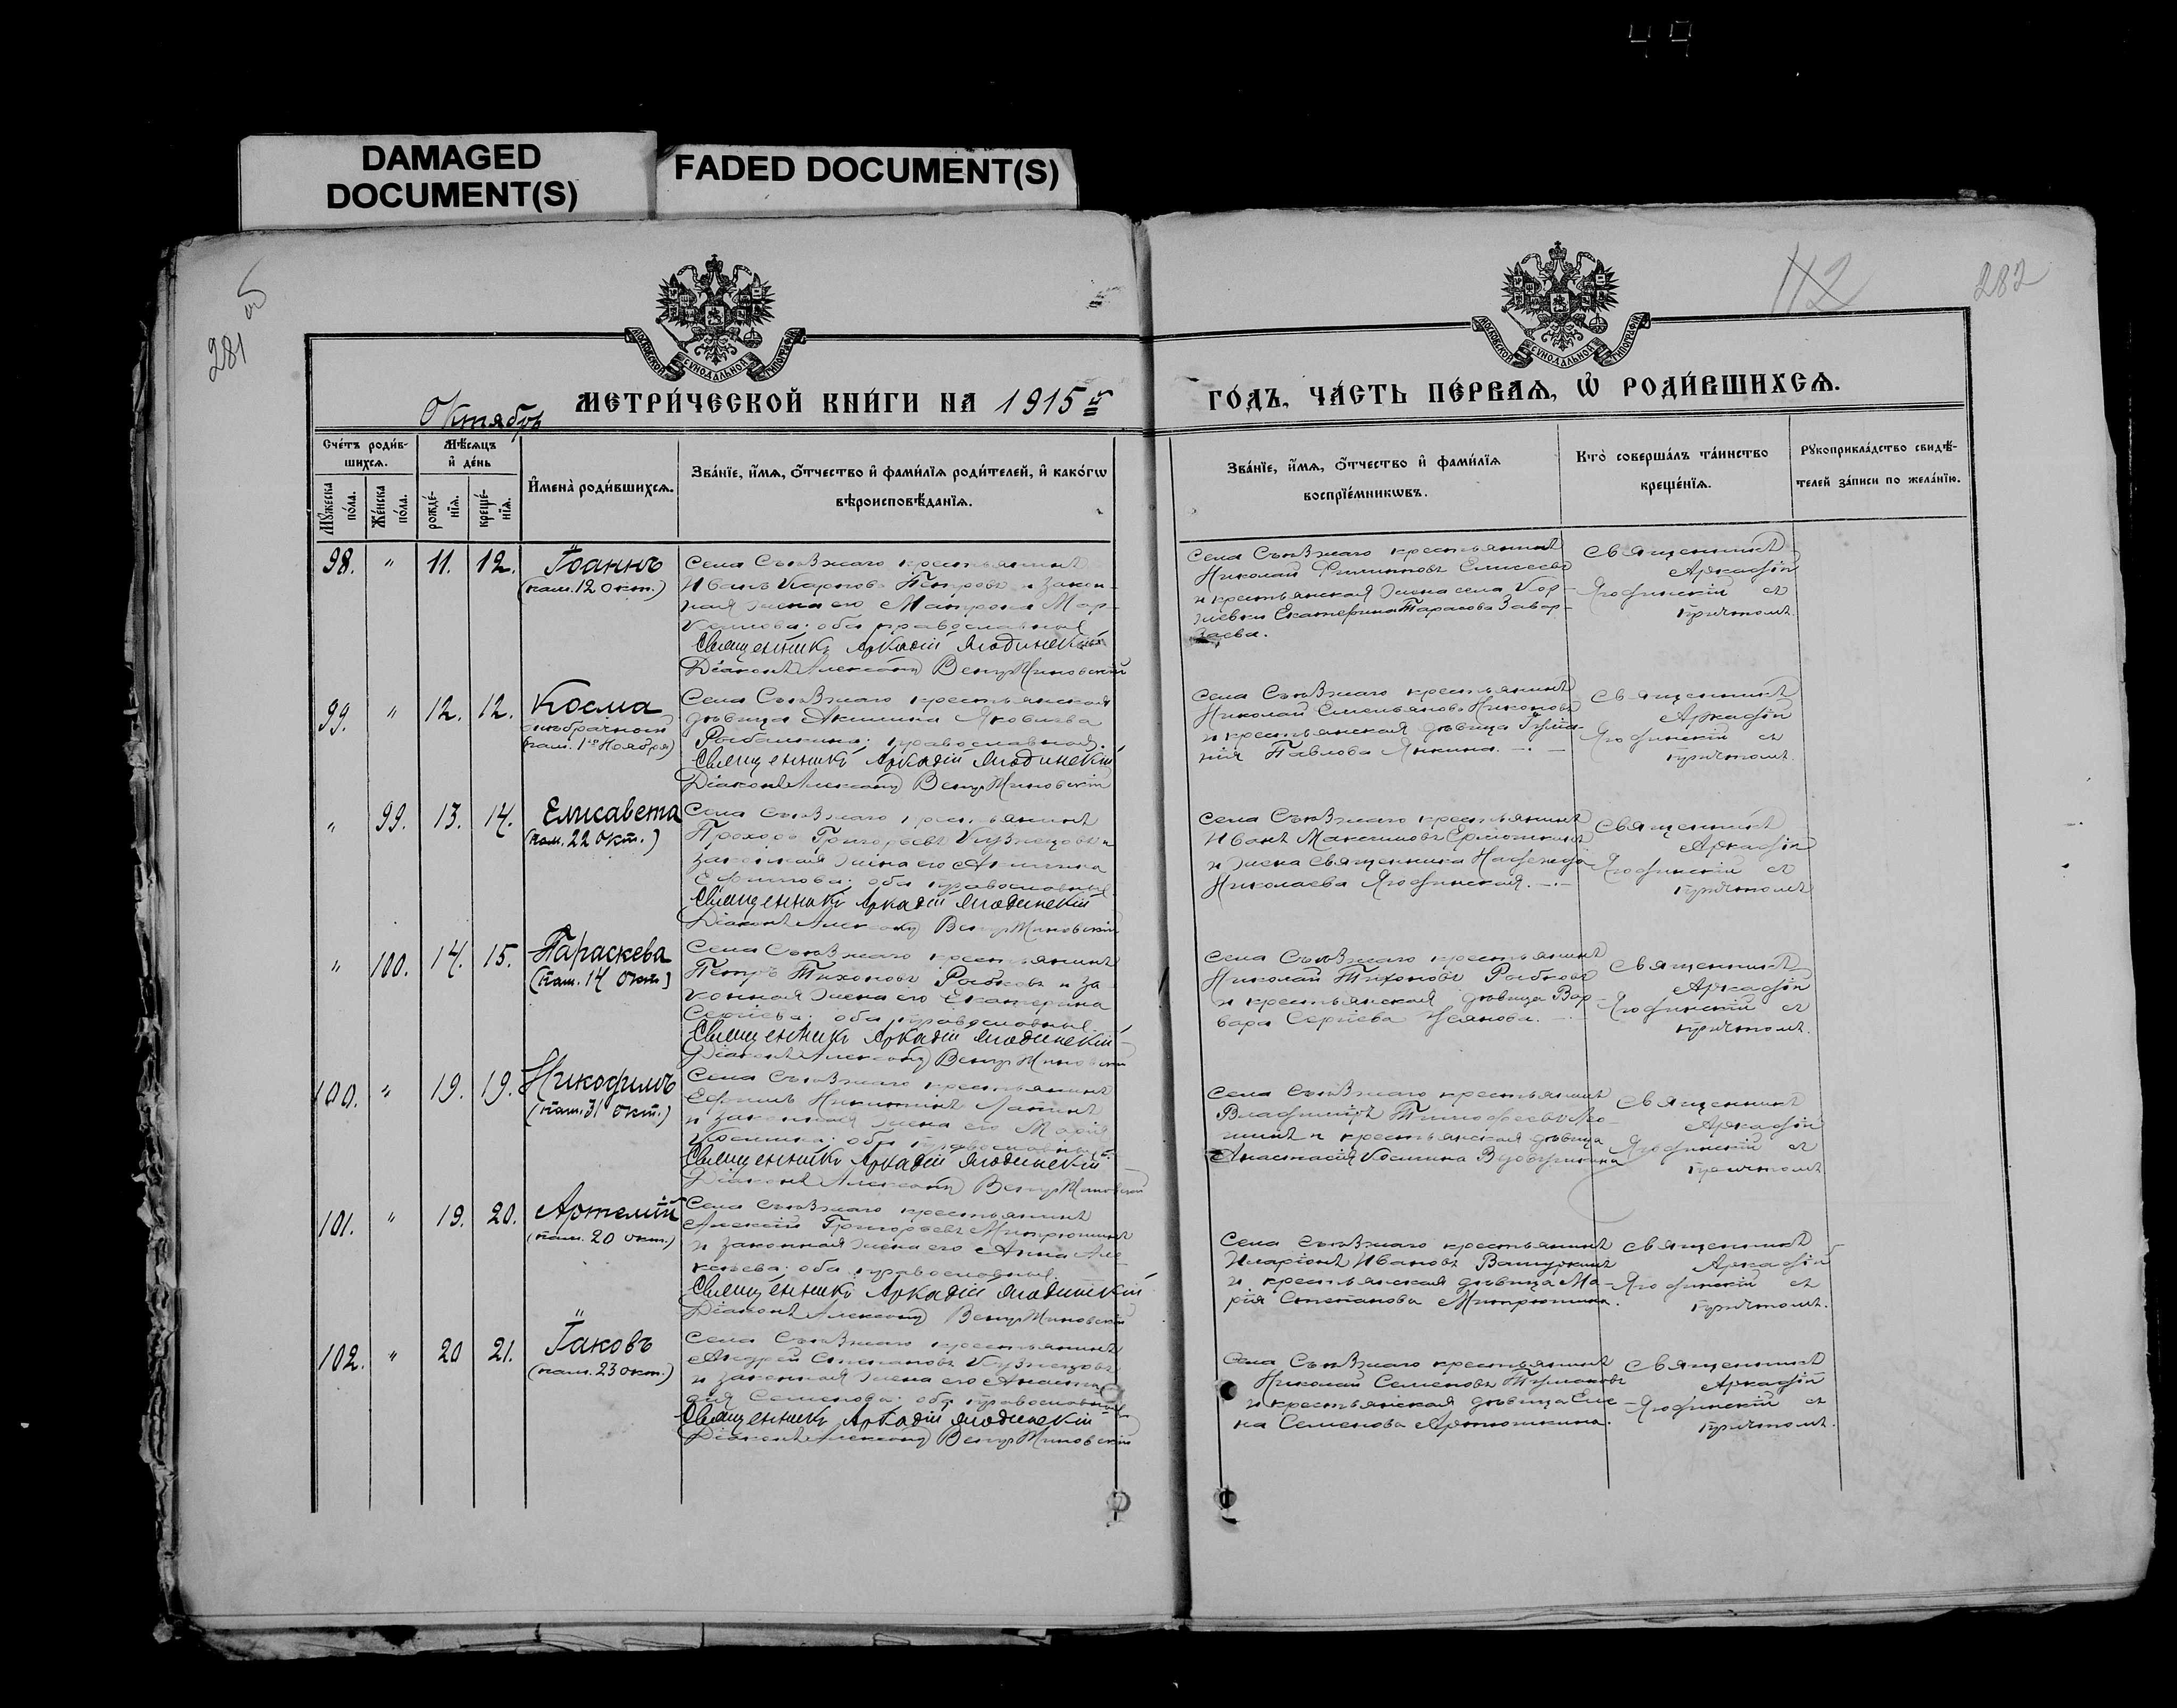 49
DAMAGED
DOCUMENT(S)
FADED DOCUMENT(S)
281 об
112
282
МОСКОВСКОЙ СѴНОДАЛЬНОЙ ТИПОГРАФІИ
МОСКОВСКОЙ СѴНОДАЛЬНОЙ ТИПОГРАФІИ
Октябрь
МЕТРИ́ЧЕСКОЙ КНИ́ГИ НА 1915 й
ГО́ДЪ, ЧА́СТЬ ПЕ́РВАѦ, Ѽ РОДИ́ВШИХСѦ.
Сче́тъ роди́в-
шихсѧ.
Мѣ́сѧцъ
и҆ де́нь
Мꙋ́жеска по́ла.
Же́нска по́ла.
рожде́-
нїѧ.
креще́-
нїѧ.
И҆мена̀ роди́вшихсѧ.
Зва́нїе, и҆́мѧ, ѻ҆́тчество и҆ фами́лїѧ роди́телей, и҆ како́гѡ
вѣроисповѣ́данїѧ.
Зва́нїе, и҆́мѧ, ѻ҆́тчество и҆ фами́лїѧ
воспрїе́мникѡвъ.
Кто̀ соверша́лъ та́инство
креще́нїѧ.
Рꙋкоприкла́дство свидѣ́-
телей за́писи по жела́нїю.
98. " 11. 12. Іоаннъ
(пам. 12 Окт.)
Села Съѣзжаго крестьянинъ
Иванъ Карповъ Петровъ и закон-
ная жена его Матрона Мар-
келлова: оба православные
Священникъ Аркадій Ягодинскій
Діаконъ Александръ
Села Съѣзжаго крестьянинъ
Николай Филипповъ Елисеевъ
и крестьянская жена села Кор-
Екатерина Тарасова Завар-
заева.
Священникъ
Аркадій
Ягодинскій съ
причтомъ.
99. " 12. 12. Косма
внебрачный
(пам. 1го Ноября)
Села Съѣзжаго крестьянская
дѣвица Акилина Яковлева
Рыбалкина: православная.
Священникъ Аркадій Ягодинскій
Діаконъ Александръ
Села Съѣзжаго крестьянинъ
Николай Емельяновъ Никоновъ
и крестьянская дѣвица Іуліа-
нія Павлова Янкина.
Священникъ
Аркадій
Ягодинскій съ
причтомъ.
" 99. 13. 14. Елисавета
(пам. 22 Окт.)
Села Съѣзжаго крестьянинъ
Прохоръ Григорьевъ Кузнецовъ и
законная жена его Акилина
Ефимова: оба православные.
Священникъ Аркадій Ягодинскій
Діаконъ Александръ
Села Съѣзжаго крестьянинъ
Иванъ Максимовъ Ермошкинъ
и жена священника Надежда
Николаева Ягодинская.
Священникъ
Аркадій
Ягодинскій съ
причтомъ
" 100. 14. 15. Параскева
(пам. 14 Окт.)
Села Съѣзжаго крестьянинъ
Петръ Тихоновъ Рыбковъ и за-
конная жена его Екатерина
Сергіева: оба православные.
Священникъ Аркадій Ягодинскій
Діаконъ Александръ
Села Съѣзжаго крестьянинъ
Николай Тихоновъ Рыбковъ
и крестьянская дѣвица Вар-
вара Сергіева Усянова.
Священникъ
Аркадій
Ягодинскій съ
причтомъ.
100. " 19. 19. Никодимъ
(пам. 31 Окт.)
Села Съѣзжаго крестьянинъ
Ефимъ Никитинъ Лапинъ
и законная жена его Марія
Космина: оба православные.
Священникъ Аркадій Ягодинскій
Діаконъ Александръ
Села Съѣзжаго крестьянинъ
Владиміръ Тимофеевъ
и крестьянская дѣвица
Анастасія Космина
Священникъ
Аркадій
Ягодинскій съ
причтомъ
101. " 19. 20. Артемій
(пам. 20 Окт.)
Села Съѣзжаго крестьянинъ
Алексій Григорьевъ Митрюшинъ
и законная жена его Анна Але-
ксѣева: оба православные.
Священникъ Аркадій Ягодинскій
Діаконъ Александръ
Села Съѣзжаго крестьянинъ
Иларіонъ Ивановъ
и крестьянская дѣвица Ма-
рія Степанова Митрюшина.
Священникъ
Аркадій
Ягодинскій съ
причтомъ.
102. " 20 21. Іаковъ
(пам. 23 Окт.)
Села Съѣзжаго крестьянинъ
Андрей Степановъ Кузнецовъ
и законная жена его Анаста-
сія Семенова: оба православные
Священникъ Аркадій Ягодинскій
Діаконъ Александръ
Села Съѣзжаго крестьянинъ
Николай Семеновъ Тумановъ
и крестьянская дѣвица Еле-
на Семенова Артюшкина.
Священникъ
Аркадій
Ягодинскій съ
причтомъ.